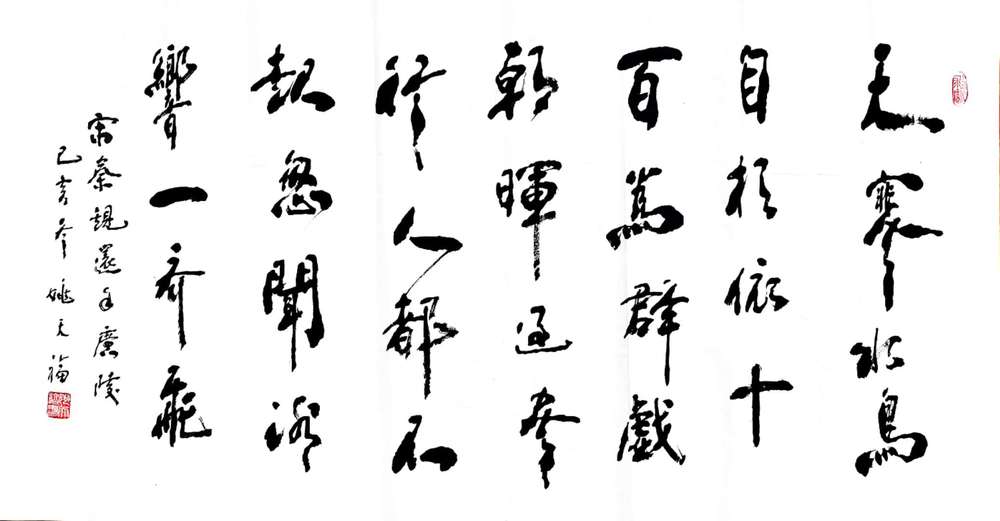 天寒水鳥
自相依十
百為群戲
朝暉過盡
行人都不
起忽聞冰
響一齊飛
宋秦觀還自廣陵
己亥 姚天福